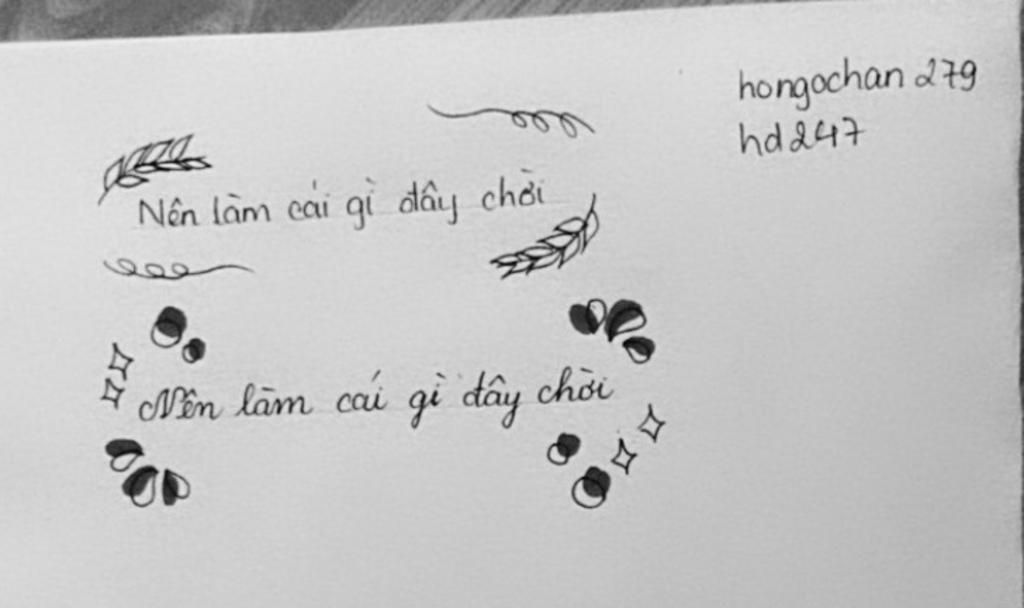 hongochan 279
hd247
Nên làm cái gì đây chời
Nên làm cái gì đây chời